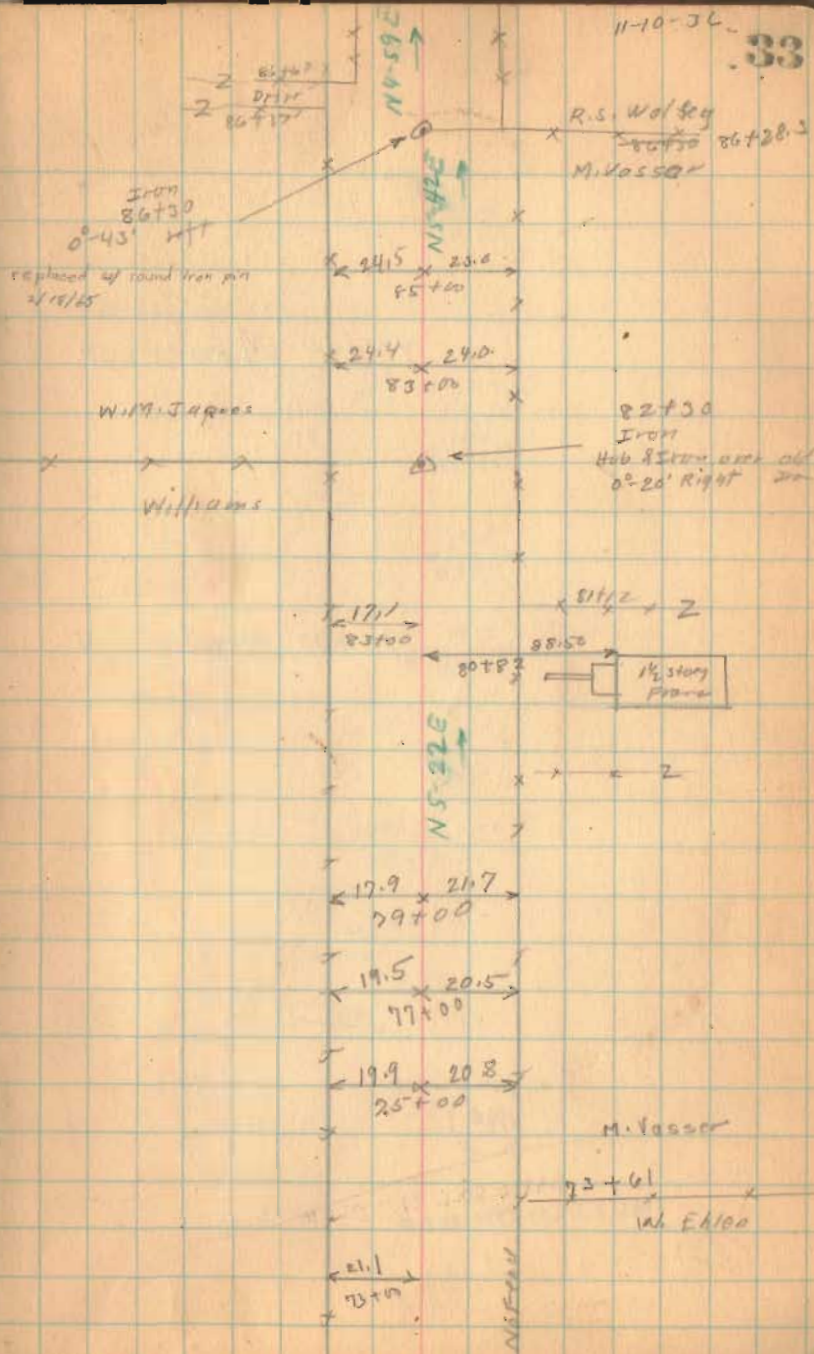 11-10-36
33
N4-59E
Z
Drive
86+37
Z
R.S. Wolfey
86+30 86+28.3
M. Vasser
Iron
86+30
0°-43' rft
replaced w/ round iron pin
2/18/65
N5-42E
24.5 23.0
85+00
24.4 24.0
83+00
W.M. Jaques
Williams
82+30
Iron
Hub & Iron over old
0°-20' Right Iron
81+12 Z
17.1
83+00
88.50
80+82
1½ Story
Frame
N5-22E
Z
17.9 21.7
79+00
19.5 20.5
77+00
19.9 20.8
75+00
M. Vasser
73+61
W. Ehlen
21.1
73+00